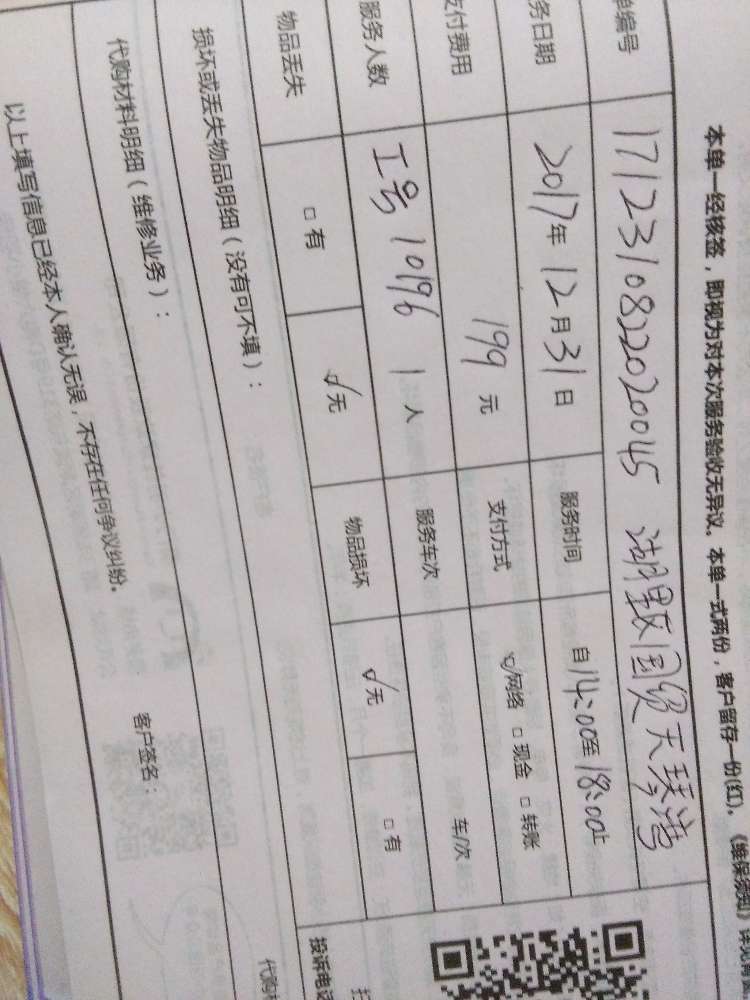 本单一经核签，即视为对本次服务验收无异议。本单一式两份，客户留存一份(红)。《维保须知》
单编号 1712310822020045 湖墅国际天琴湾
务日期 2017年 12月 31日 服务时间 自14:00至18:00止
支付费用 199 元 支付方式 ☑网络 □ 现金 □ 转账
服务人数 工号 10196 1 人 服务车次 车/次
物品丢失 □ 有 ☑无 物品损坏 ☑无 □ 有
损坏或丢失物品明细（没有可不填）：
代购材料明细（维修业务）：
以上填写信息已经本人确认无误，不存在任何争议纠纷。
客户签名：
投诉电话
代购材